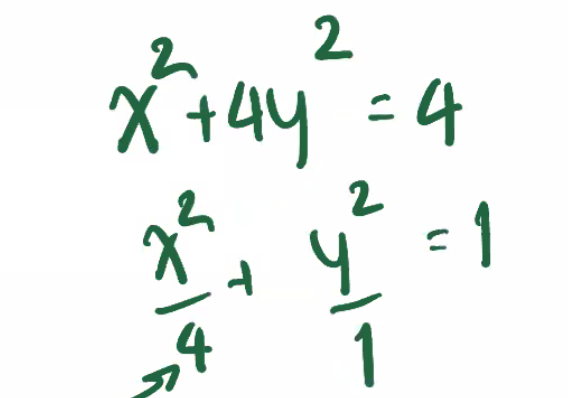 x²+4y²=4
x²/4 + y²/1 = 1